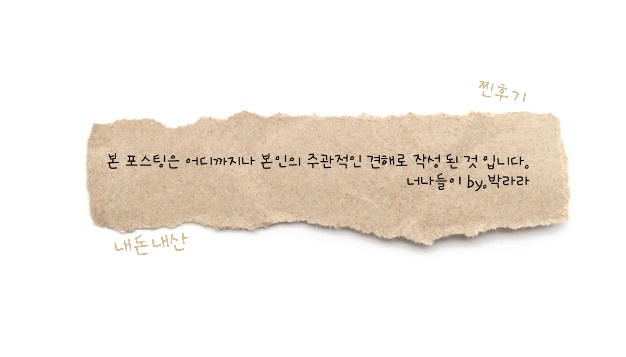 찐후기
본 포스팅은 어디까지나 본인의 주관적인 견해로 작성 된 것 입니다.
너나들이 by.박라라
내돈내산